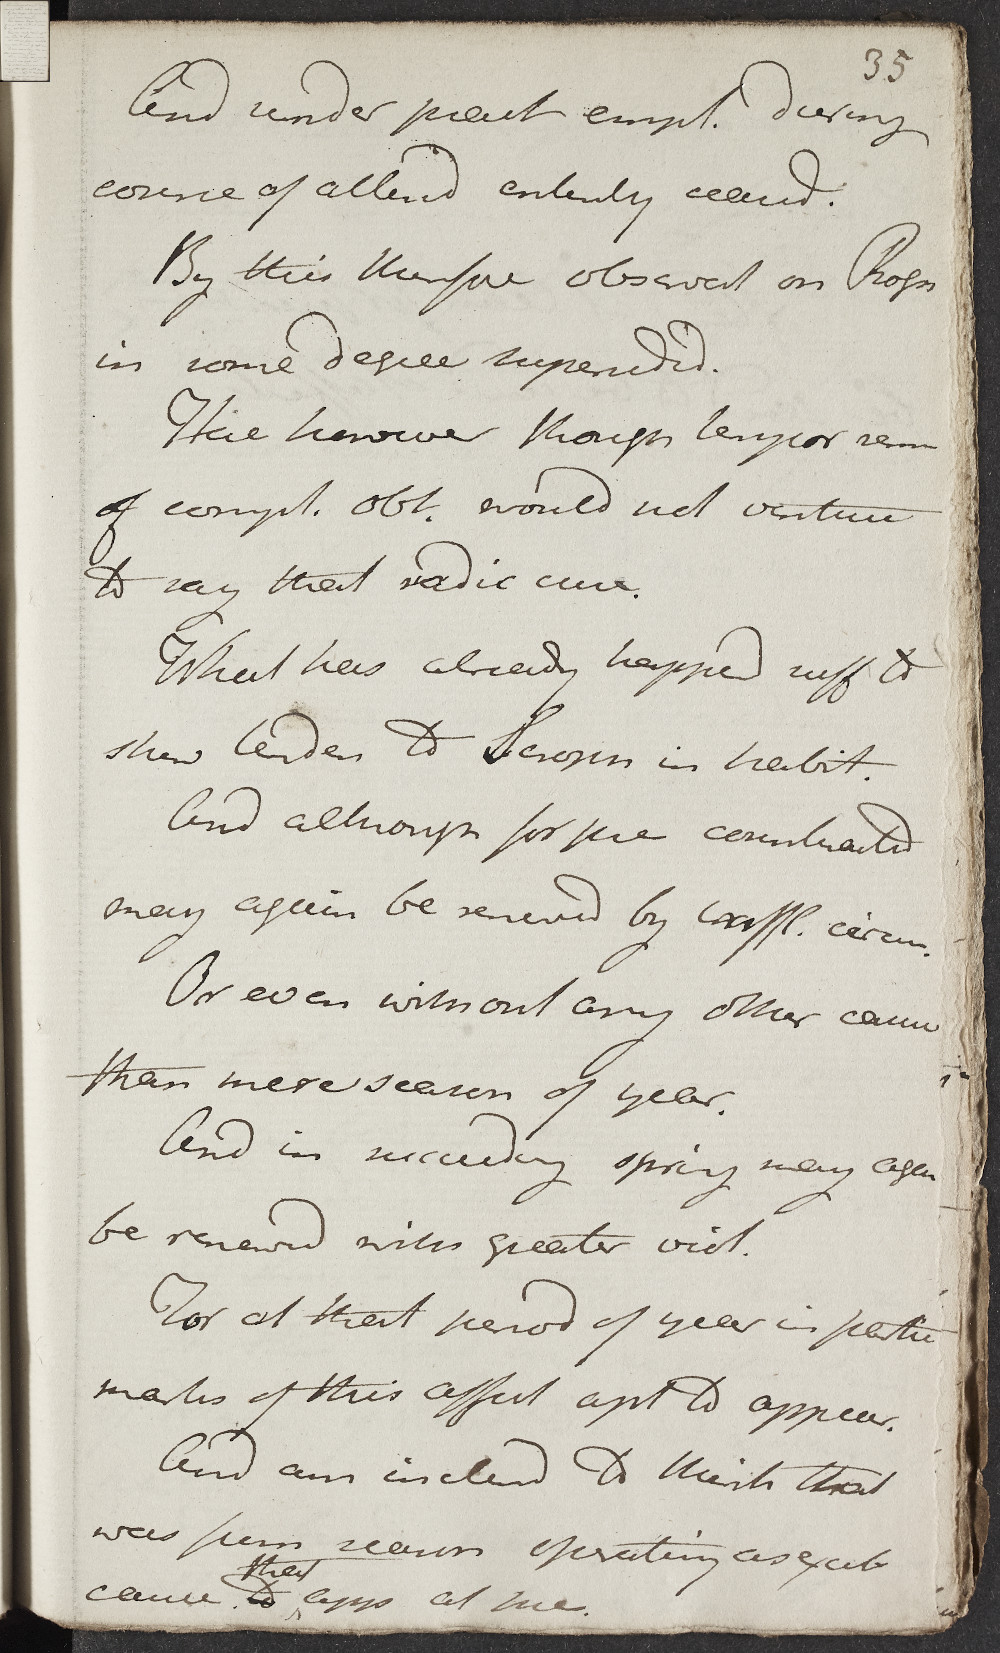 35
And under pract empl. during
course of attend entirely ceasd.
By this therefore observat on Progn
in some degree supersedd.
Here however though tempor rem
of compl. obt. would not venture
to say that radic cure.
What has already happend suff to
shew tenden to Scroph in habit.
And although for pre counteractd
may again be renewd by difft. circum.
Or even without any other cause
than mere season of year.
And in succeeding spring may again
be renewd with greater viol.
For at that period of year in partic
marks of this affect apt to appear.
And am inclend to think that
was from season operating as excit
cause. that apps at